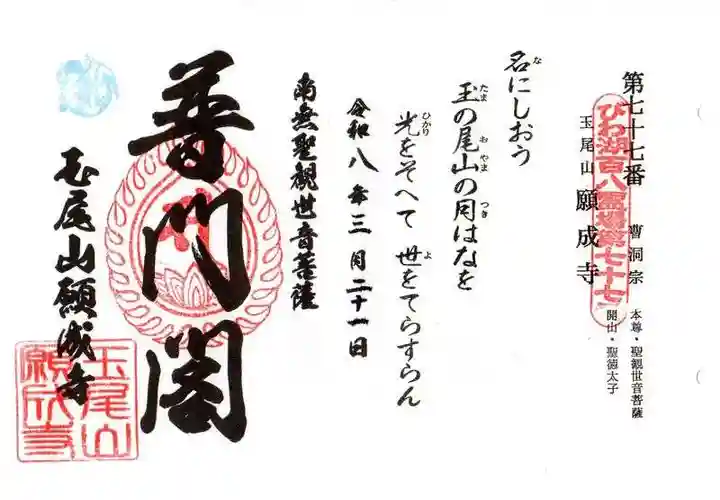 第七十七番
曹洞宗
本尊・聖観世音菩薩
開山・聖徳太子
びわ湖百八霊場第七十七
玉尾山 願成寺
名にしおう
な
玉の尾山の月はなを
たま お やま つき
光をそへて 世をてらすらん
ひかり よ
令和八年三月二十一日
南無聖観世音菩薩
普門閣
玉尾山願成寺
玉尾山
願成寺